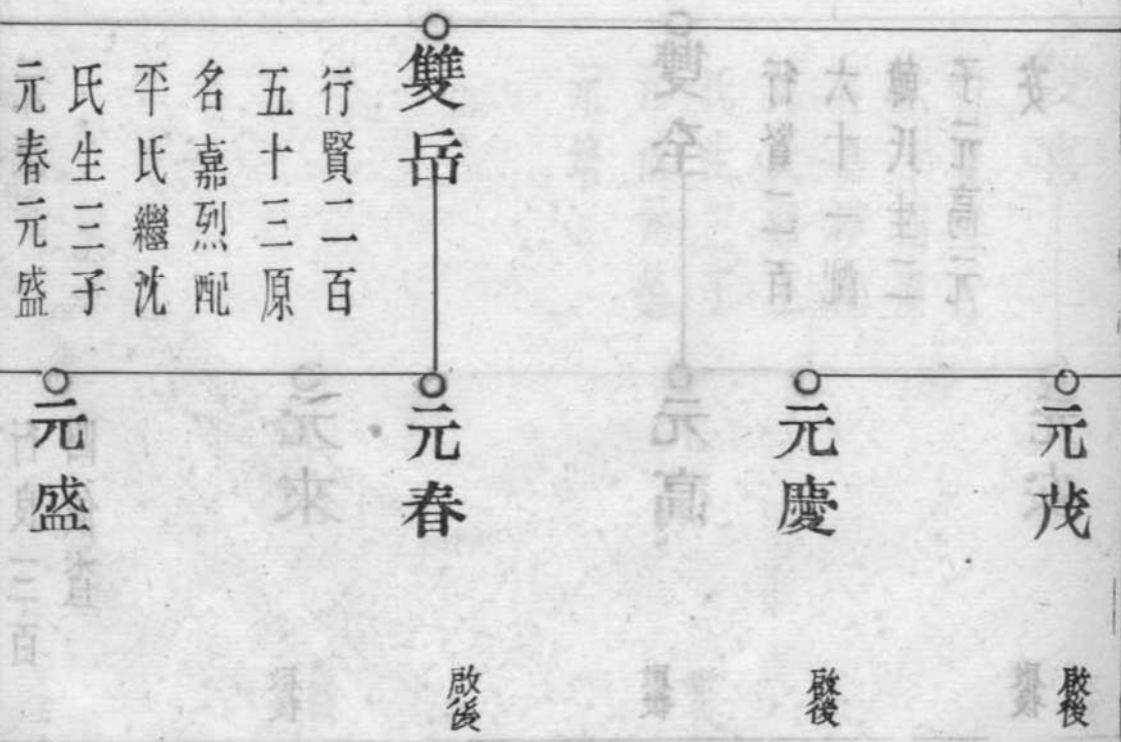 雙岳
行賢二百
五十三原
名嘉烈配
平氏繼沈
氏生三子
元春元盛
元茂
啟後
元慶
啟後
元春
啟後
元盛